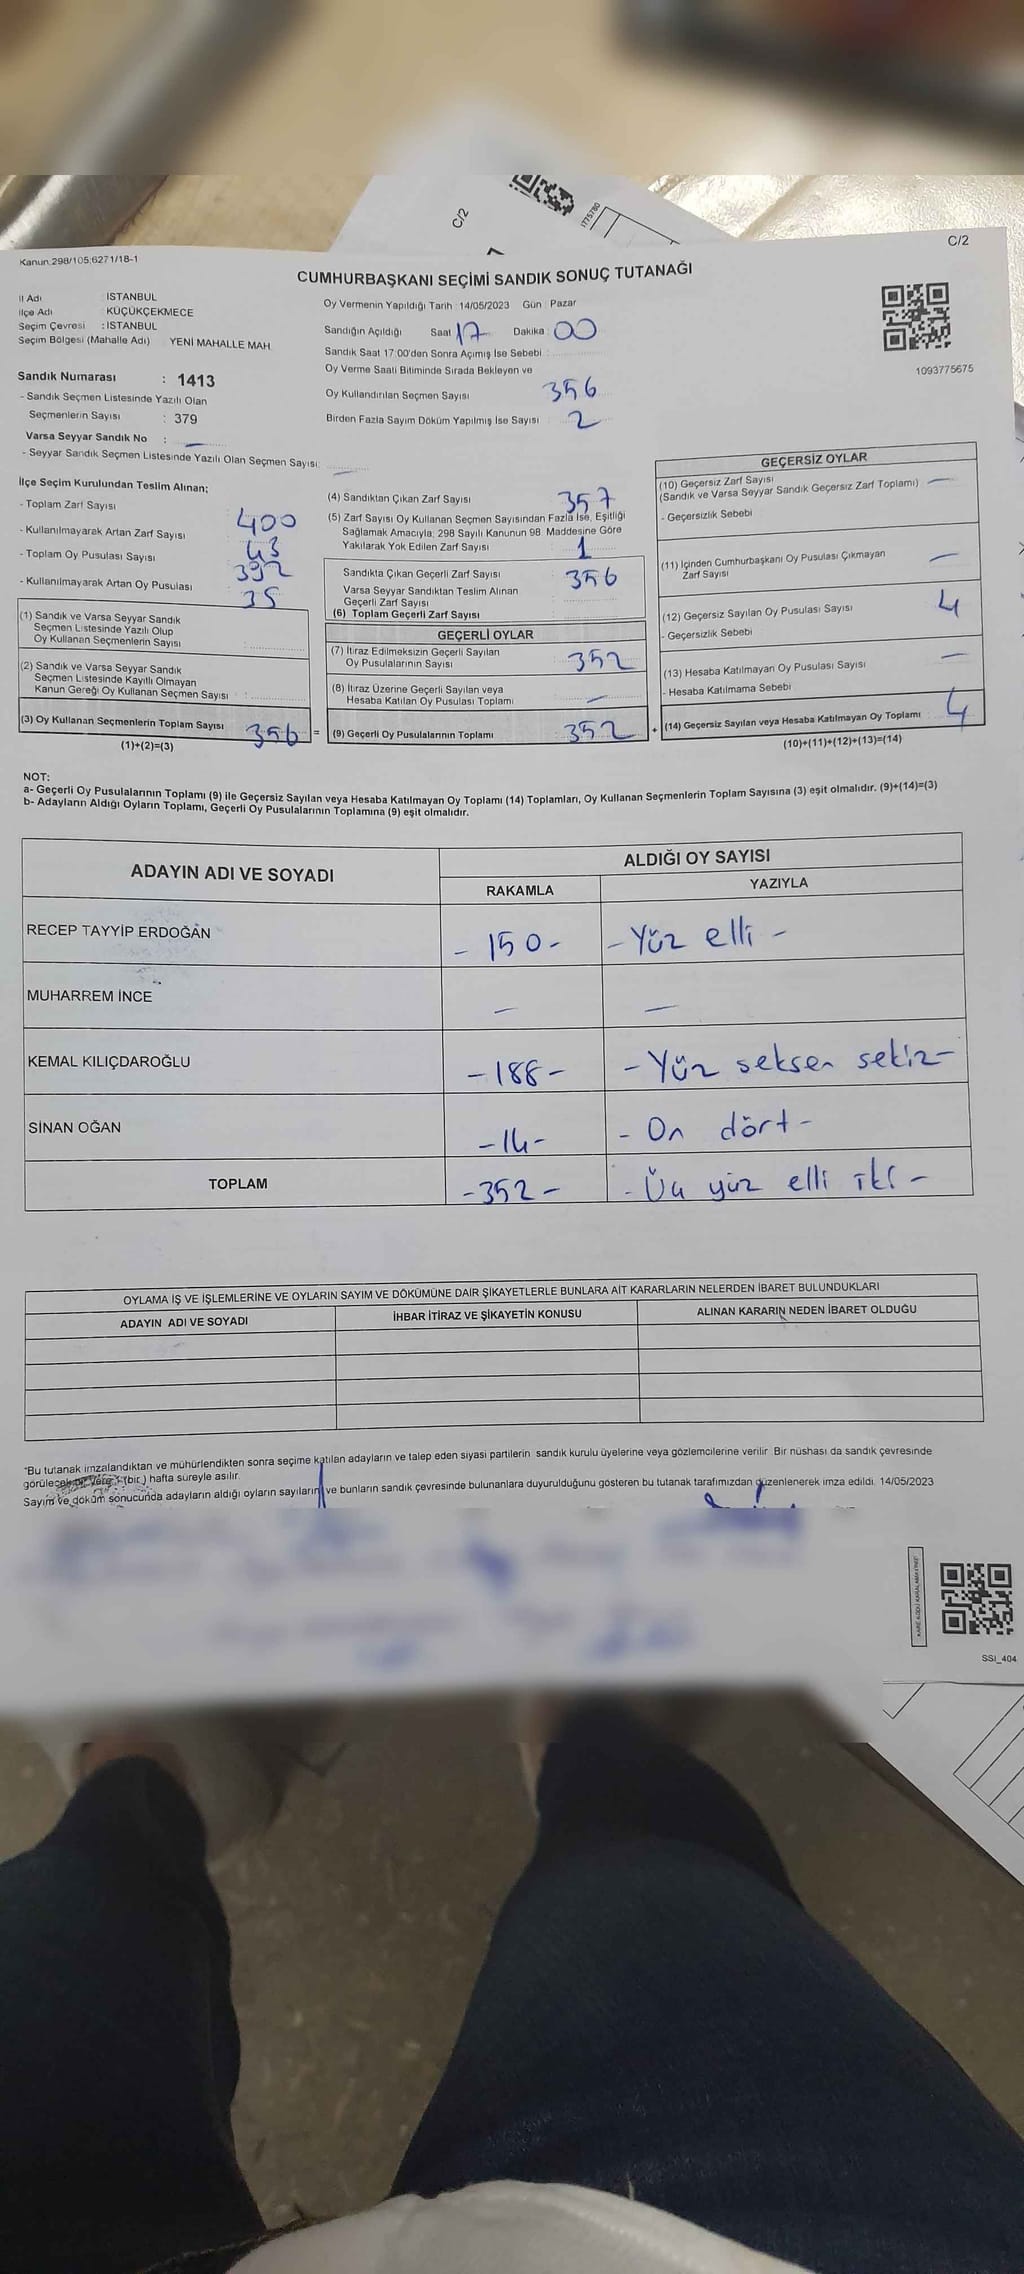 C/2
1775780
C/2
Kanun.298/105;6271/18-1
CUMHURBAŞKANI SEÇİMİ SANDIK SONUÇ TUTANAĞI
İl Adı : İSTANBUL
İlçe Adı : KÜÇÜKÇEKMECE
Seçim Çevresi : İSTANBUL
Seçim Bölgesi (Mahalle Adı) YENİ MAHALLE MAH.
Sandık Numarası : 1413
- Sandık Seçmen Listesinde Yazılı Olan
Seçmenlerin Sayısı : 379
Varsa Seyyar Sandık No : —
- Seyyar Sandık Seçmen Listesinde Yazılı Olan Seçmen Sayısı: —
Oy Vermenin Yapıldığı Tarih : 14/05/2023 Gün : Pazar
Sandığın Açıldığı Saat 17 Dakika : 00
Sandık Saat 17:00'den Sonra Açımış İse Sebebi :
Oy Verme Saati Bitiminde Sırada Bekleyen ve
Oy Kullandırılan Seçmen Sayısı 356
Birden Fazla Sayım Döküm Yapılmış İse Sayısı : 2
1093775675
İlçe Seçim Kurulundan Teslim Alınan;
- Toplam Zarf Sayısı 400
- Kullanılmayarak Artan Zarf Sayısı 43
- Toplam Oy Pusulası Sayısı 392
- Kullanılmayarak Artan Oy Pusulası 35
(1) Sandık ve Varsa Seyyar Sandık
Seçmen Listesinde Yazılı Olup
Oy Kullanan Seçmenlerin Sayısı :
(2) Sandık ve Varsa Seyyar Sandık
Seçmen Listesinde Kayıtlı Olmayan
Kanun Gereği Oy Kullanan Seçmen Sayısı :
(3) Oy Kullanan Seçmenlerin Toplam Sayısı 356 =
(1)+(2)=(3)
(4) Sandıktan Çıkan Zarf Sayısı 357
(5) Zarf Sayısı Oy Kullanan Seçmen Sayısından Fazla İse, Eşitliği
Sağlamak Amacıyla, 298 Sayılı Kanunun 98. Maddesine Göre
Yakılarak Yok Edilen Zarf Sayısı 1
Sandıkta Çıkan Geçerli Zarf Sayısı 356
Varsa Seyyar Sandıktan Teslim Alınan
Geçerli Zarf Sayısı
(6) Toplam Geçerli Zarf Sayısı
GEÇERLİ OYLAR
(7) İtiraz Edilmeksizin Geçerli Sayılan
Oy Pusulalarının Sayısı 352
(8) İtiraz Üzerine Geçerli Sayılan veya
Hesaba Katılan Oy Pusulası Toplamı —
(9) Geçerli Oy Pusulalarının Toplamı 352 +
GEÇERSİZ OYLAR
(10) Geçersiz Zarf Sayısı —
(Sandık ve Varsa Seyyar Sandık Geçersiz Zarf Toplamı)
- Geçersizlik Sebebi
(11) İçinden Cumhurbaşkanı Oy Pusulası Çıkmayan
Zarf Sayısı —
(12) Geçersiz Sayılan Oy Pusulası Sayısı 4
- Geçersizlik Sebebi
(13) Hesaba Katılmayan Oy Pusulası Sayısı —
- Hesaba Katılmama Sebebi
(14) Geçersiz Sayılan veya Hesaba Katılmayan Oy Toplamı 4
(10)+(11)+(12)+(13)=(14)
NOT:
a- Geçerli Oy Pusulalarının Toplamı (9) ile Geçersiz Sayılan veya Hesaba Katılmayan Oy Toplamı (14) Toplamları, Oy Kullanan Seçmenlerin Toplam Sayısına (3) eşit olmalıdır. (9)+(14)=(3)
b- Adayların Aldığı Oyların Toplamı, Geçerli Oy Pusulalarının Toplamına (9) eşit olmalıdır.
ADAYIN ADI VE SOYADI ALDIĞI OY SAYISI
RAKAMLA YAZIYLA
RECEP TAYYİP ERDOĞAN - 150 - - Yüz elli -
MUHARREM İNCE — —
KEMAL KILIÇDAROĞLU - 188 - - Yüz seksen sekiz -
SİNAN OĞAN - 14 - - On dört -
TOPLAM - 352 - - Üç yüz elli iki -
OYLAMA İŞ VE İŞLEMLERİNE VE OYLARIN SAYIM VE DÖKÜMÜNE DAİR ŞİKAYETLERLE BUNLARA AİT KARARLARIN NELERDEN İBARET BULUNDUKLARI
ADAYIN ADI VE SOYADI İHBAR İTİRAZ VE ŞİKAYETİN KONUSU ALINAN KARARIN NEDEN İBARET OLDUĞU
"Bu tutanak imzalandıktan ve mühürlendikten sonra seçime katılan adayların ve talep eden siyasi partilerin sandık kurulu üyelerine veya gözlemcilerine verilir. Bir nüshası da sandık çevresinde
görülecek bir yere 1 (bir) hafta süreyle asılır.
Sayım ve döküm sonucunda adayların aldığı oyların sayıların ve bunların sandık çevresinde bulunanlara duyurulduğunu gösteren bu tutanak tarafımızdan düzenlenerek imza edildi. 14/05/2023
KARE KODU KARALAMAYINIZ
SSI_404